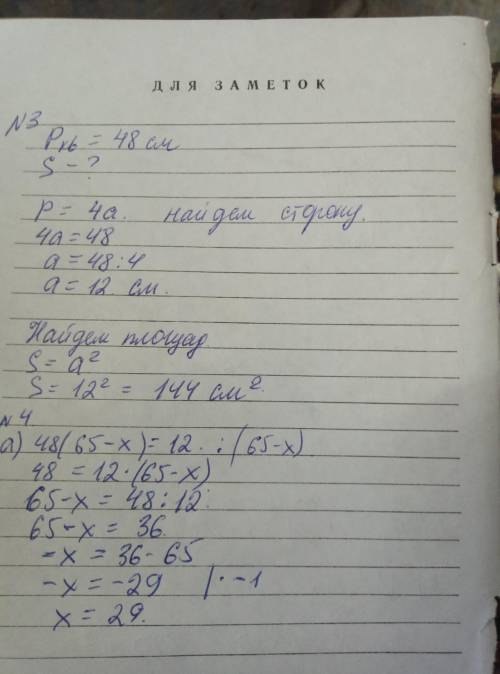 ДЛЯ ЗАМЕТОК
N3
Pкв = 48 см
S - ?
P = 4a. найдем сторону.
4a = 48
a = 48 : 4
a = 12 см.
Найдем площад
S = a²
S = 12² = 144 см².
N4.
а) 48(65-x) = 12. : (65-x)
48 = 12·(65-x)
65-x = 48:12
65-x = 36.
-x = 36-65
-x = -29 | · -1
x = 29.